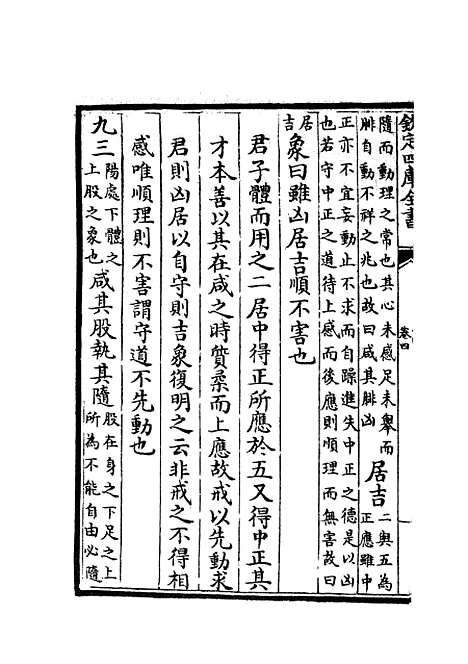 欽定四庫全書
卷四
隨而動理之常也其心未感足未舉而
腓自動不祥之兆也故曰咸其腓凶
居吉
二與五為
正應雖中
正亦不宜妄動止不求而自躁進失中正之德是以凶
也若守中正之道待上感而後應則順理而無害故曰
居吉
象曰雖凶居吉順不害也
君子體而用之二居中得正所應於五又得中正其
才本善以其在咸之時質柔而上應故戒以先動求
君則凶居以自守則吉象復明之云非戒之不得相
感唯順理則不害謂守道不先動也
九三
陽處下體之
上股之象也
咸其股執其隨
股在身之下足之上
所為不能自由必隨